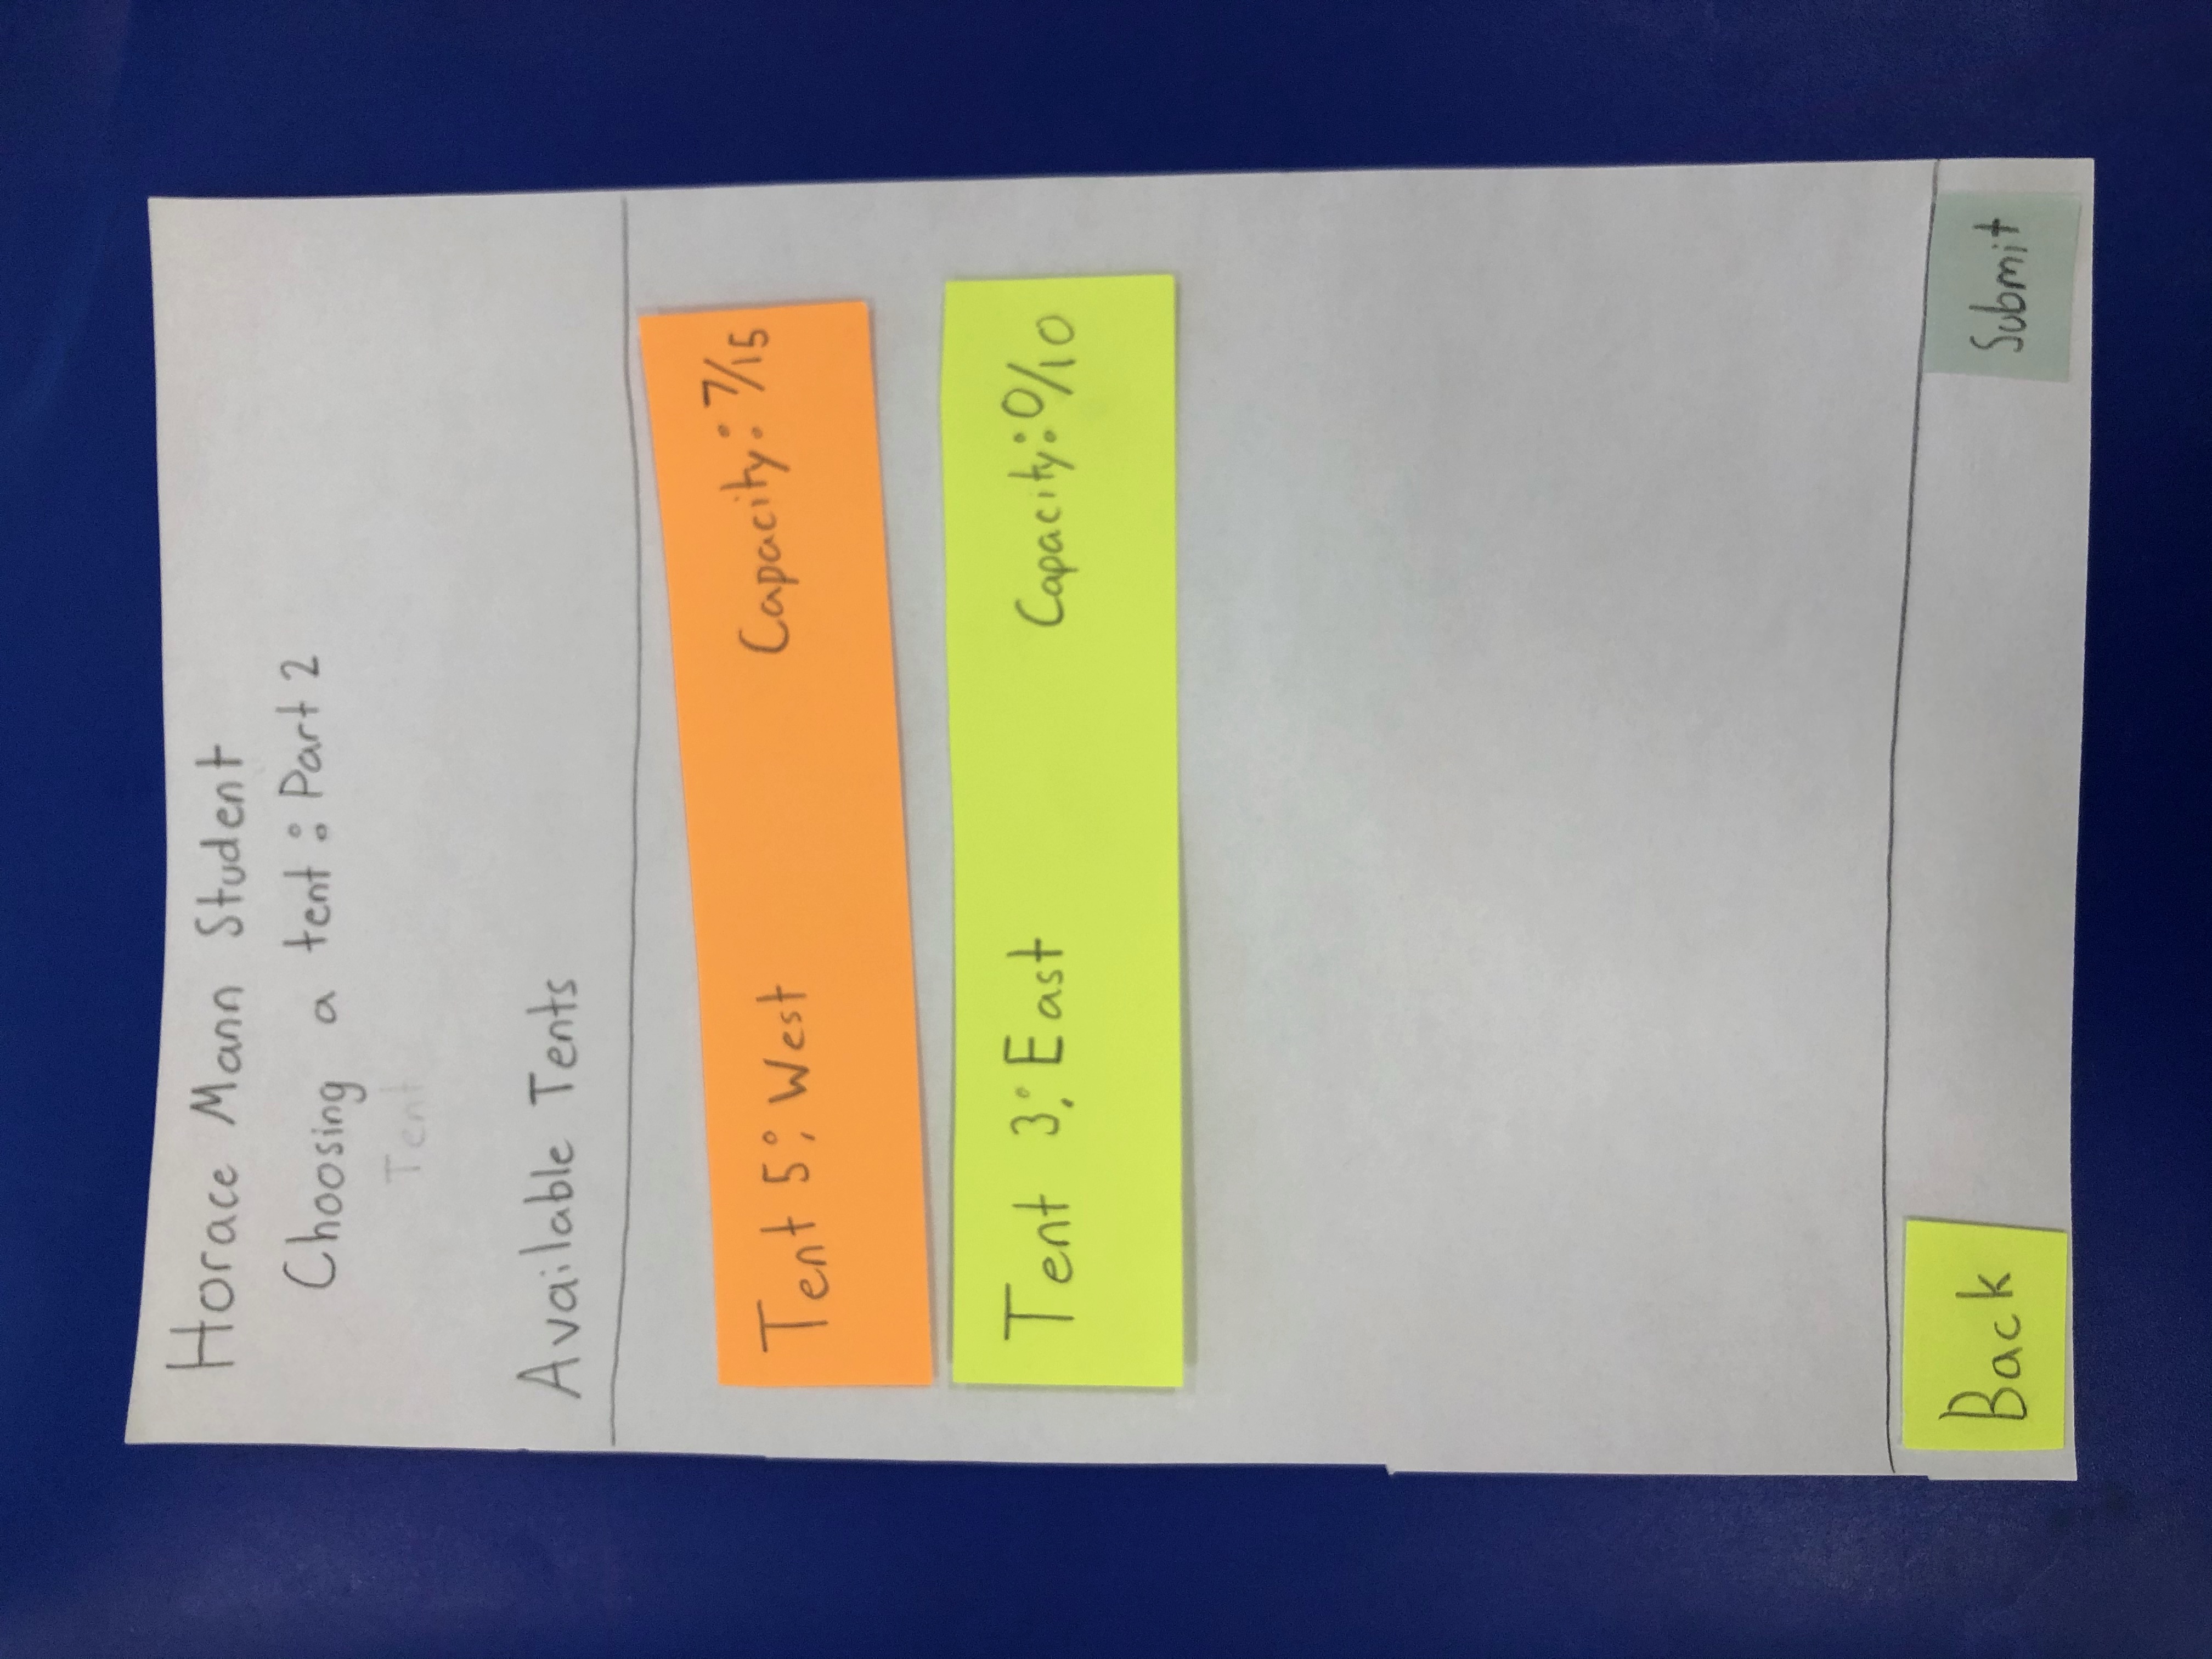 Horace Mann Student
Choosing a tent: Part 2
Tent
Available Tents
Tent 5: West Capacity: 7/15
Tent 3: East Capacity: 0/10
Back Submit